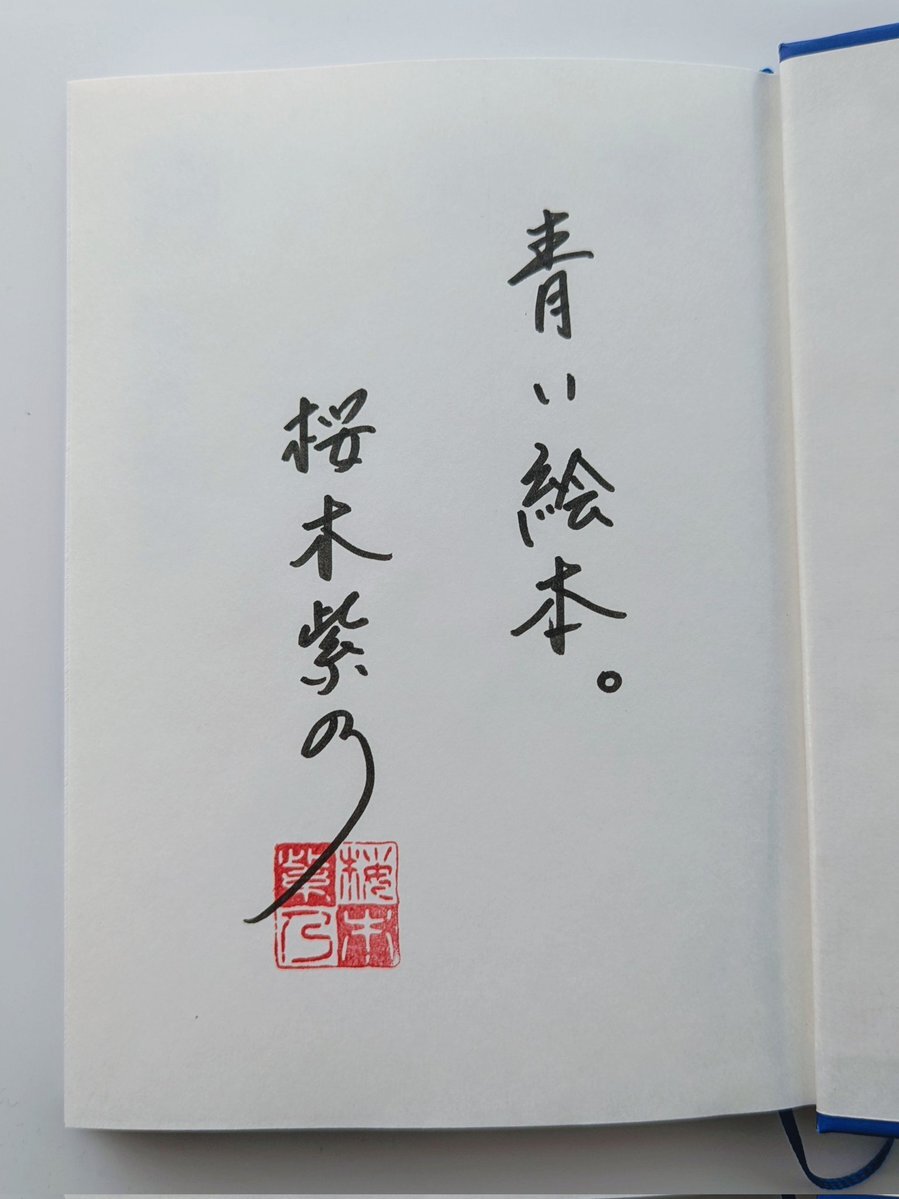 青い絵本。
桜木紫乃
桜木
紫乃